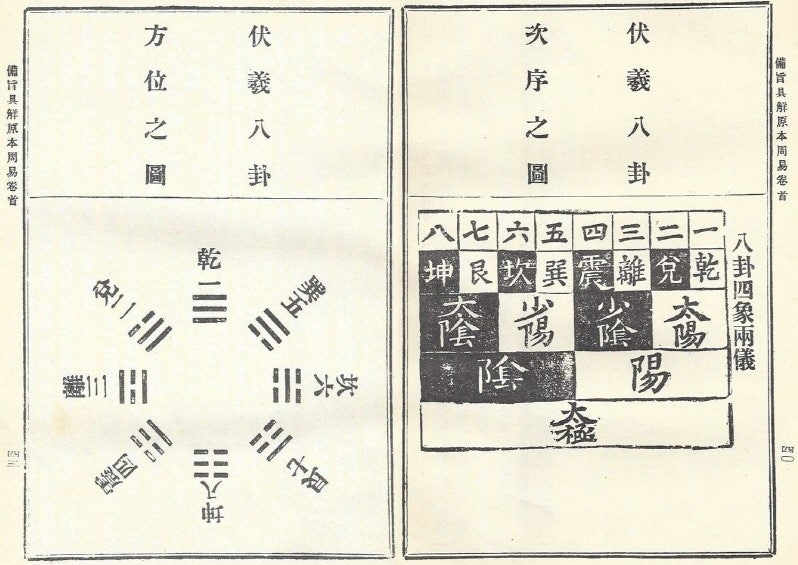 備旨具解原本周易卷首
四〇
伏羲八卦
次序之圖
八卦四象兩儀
一 二 三 四 五 六 七 八
乾 兌 離 震 巽 坎 艮 坤
太陽 少陰 少陽 太陰
陽 陰
太極
伏羲八卦
方位之圖
乾一
兌二
離三
震四
巽五
坎六
艮七
坤八
備旨具解原本周易卷首